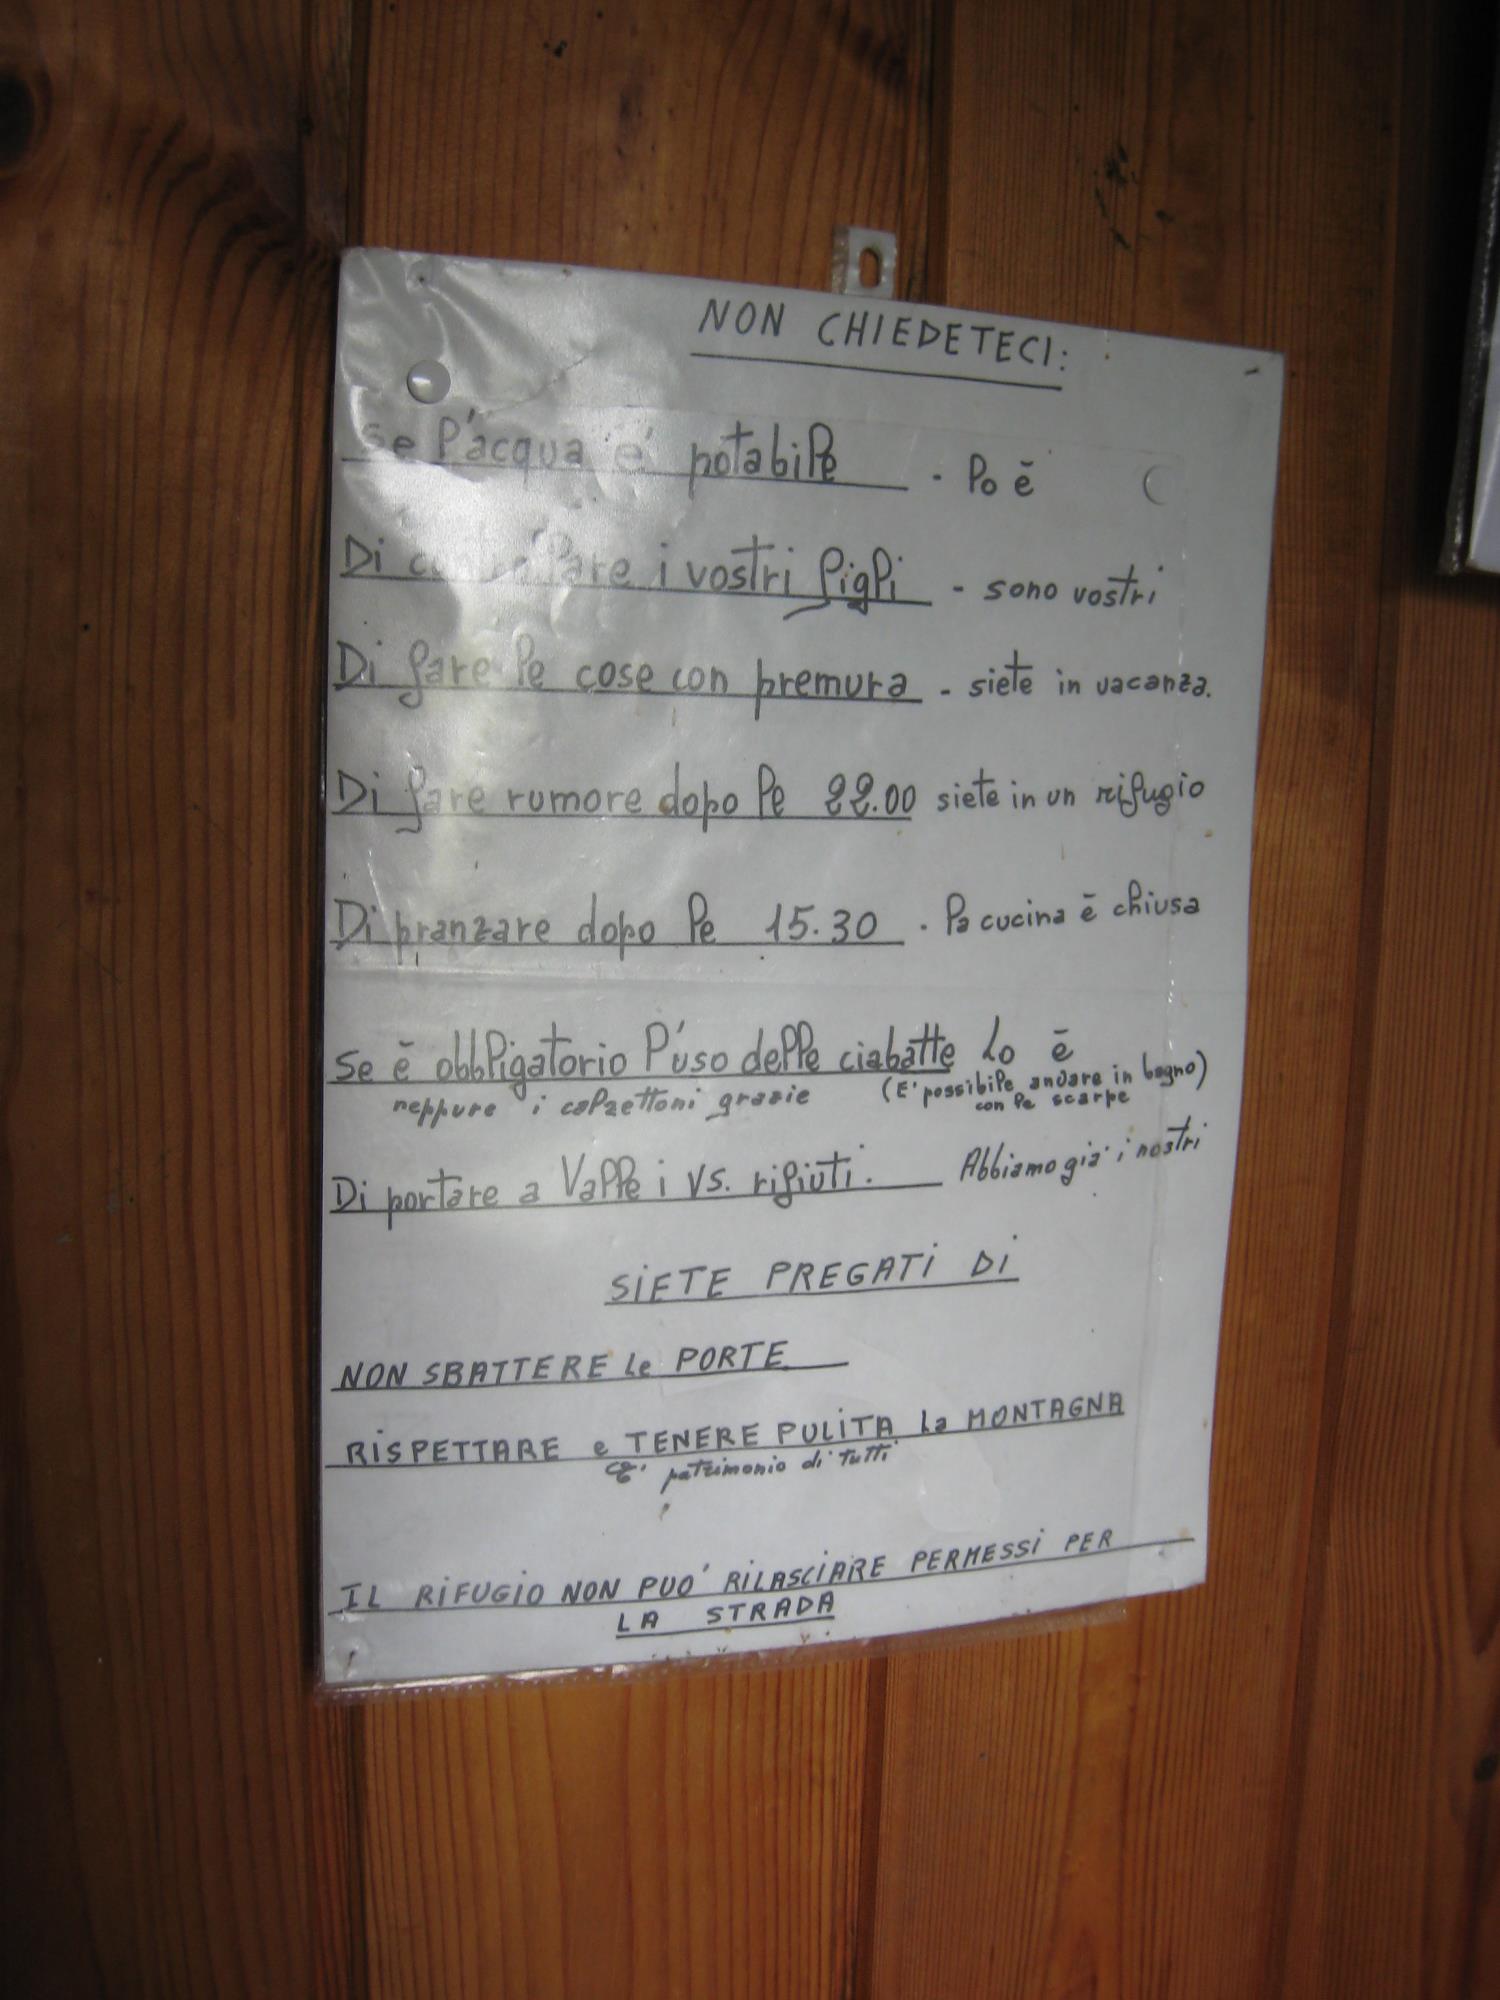 NON CHIEDETECI:
Se l'acqua e' potabile - lo è
Di controllare i vostri figli - sono vostri
Di fare le cose con premura - siete in vacanza.
Di fare rumore dopo le 22.00 siete in un rifugio
Di pranzare dopo le 15.30 - la cucina è chiusa
Se è obbligatorio l'uso delle ciabatte Lo è
neppure i calzettoni grazie (E' possibile andare in bagno)
con le scarpe
Di portare a Valle i vs. rifiuti. Abbiamo gia' i nostri
SIETE PREGATI DI
NON SBATTERE le PORTE
RISPETTARE e TENERE PULITA la MONTAGNA
E' patrimonio di tutti
IL RIFUGIO NON PUO' RILASCIARE PERMESSI PER
LA STRADA